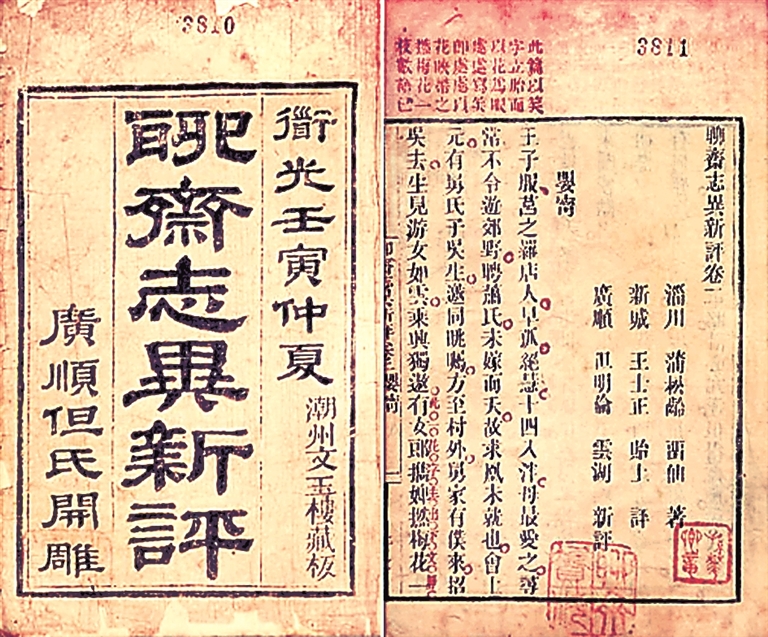 3810
衜光壬寅仲夏
潮州文玉樓藏板
聊齋志異新評
廣順但氏開雕
3811
聊齋志異新評卷二
淄川 蒲松齡 留仙 著
新城 王士正 貽上 評
廣順 但明倫 雲湖 新評
嬰寧
王子服莒之羅店人早孤絕慧十四入泮母最愛之尋
常不令遊郊野聘蕭氏未嫁而夭故求凰未就也會上
元有舅氏子吳生邀同眺矚方至村外舅家有僕來招
吳去生見游女如雲乘興獨遨有女郎攜婢撚梅花一
此篇以笑
字立胎而
以花為眼
處處寫笑
即處處以
花映帶之
撚梅花一
枝數語已